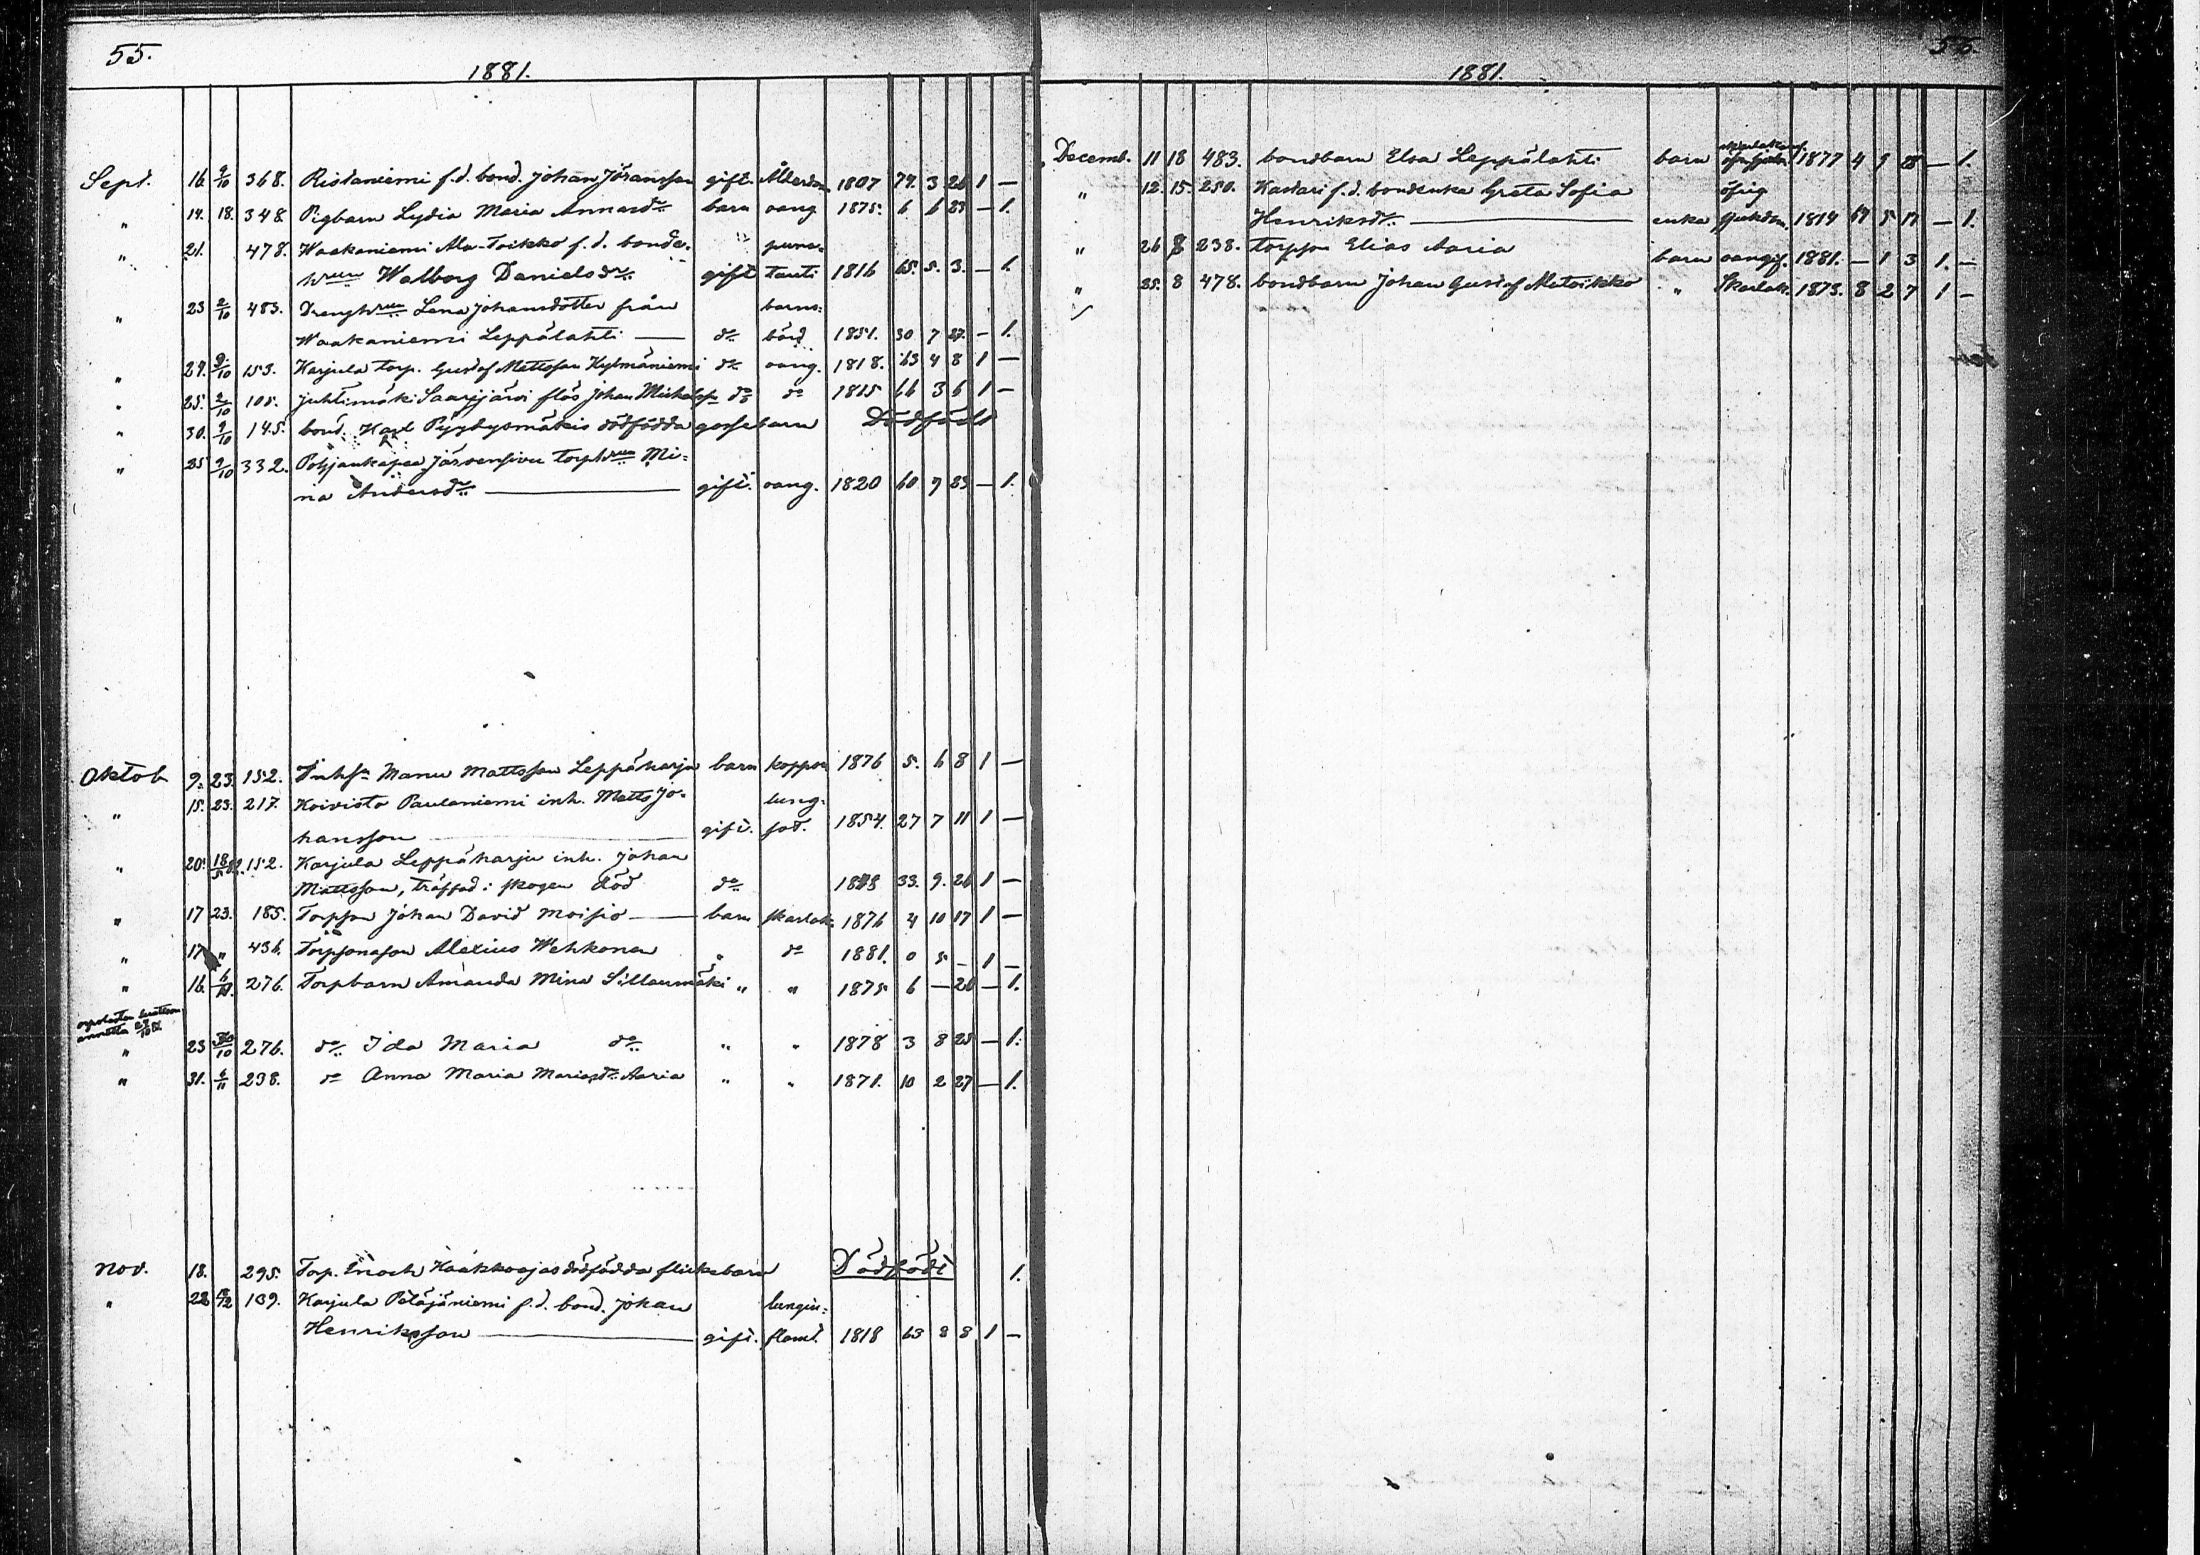 55.
1881.
Sept. 16. 9/10 368. Ristaniemi f.d. bond. Johan Jöransson gift. Ålderdom 1807 74. 3 26 1 —
" 14. 18. 348 Pigbarn Lydia Maria Annasdr barn oang. 1875. 6 6 23 — 1.
" 21. 478. Waakaniemi Ala-Toikko f.d. bonde- puna-
hrun Walborg Danielsdr gift tauti 1816 65. 5. 3. — 1.
" 23 2/10 483. Drenghrun Lena Johansdotter från barns-
Waakaniemi Leppälahti — do börd 1851. 30 7 27. — 1.
" 29. 9/10 153. Karjula torp. Gustaf Mattsson Kylmäniemi do oang. 1818. 63 4 8 1 —
" 25. 2/10 105. Juhtimäki Saarijärvi Johan do do 1815 66 3 6 1 —
" 30. 9/10 145. bond. Karl Pyydysmäkis dödfödda gossebarn Dödfödt
" 25 9/10 332. Pohjankapee Järvensivu torphrun Mi-
na Andersdr — gift. oang. 1820 60 9 23 — 1.
Oktob. 9. 23. 152. Inhs. Manu Mattsson Leppäharju barn koppor 1876 5. 6 8 1 —
" 15. 23. 217. Koivisto Paulaniemi inh. Matts Jo- lung-
hansson — gift. sot. 1854. 27 7 11 1 —
" 20. 18/5 82. 152. Karjula Leppäharju inh. Johan
Mattsson, träffad i skogen död do 1848 33. 9. 26 1 —
" 17 23. 185. Torpson Johan David Moisio — barn skarlak. 1876 4 10 17 1 —
" 17 " 436. Torpsonason Alexius Wehkonen " do 1881. 0 5 — 1 —
" 16. 6/11. 276. Torpbarn Amanda Mina Sillanmäki " " 1875 6 — 26 — 1.
" 23 30/10 276. do Ida Maria do " " 1878 3 8 25 — 1.
" 31. 6/11 238. do Anna Maria Mariasdr Aaria " " 1871. 10 2 27 — 1.
Nov. 18. 295. Torp. Enoch Kaakkoojas dödfödda flickebarn Dödfödt 1.
" 28 139. Karjula Petäjäniemi f.d. bond. Johan lungin-
Henriksson — gift. flamt. 1818 63 8 8 1 —
1881.
Decemb. 11 18 483. bondbarn Elsa Leppälahti barn 1877 4 5 28 — 1.
" 12. 15. 250. Kastari f.d. bondenka Greta Sofia öfrig
Henriksdr — enka sjukdom. 1814 67 5 17 — 1.
" 26 8 238. torpson Elias Aaria barn oangif. 1881. — 1 3 1. —
" 25. 8 478. bondbarn Johan Gustaf Alatoikko " Skarlak. 1873. 8 2 7 1 —